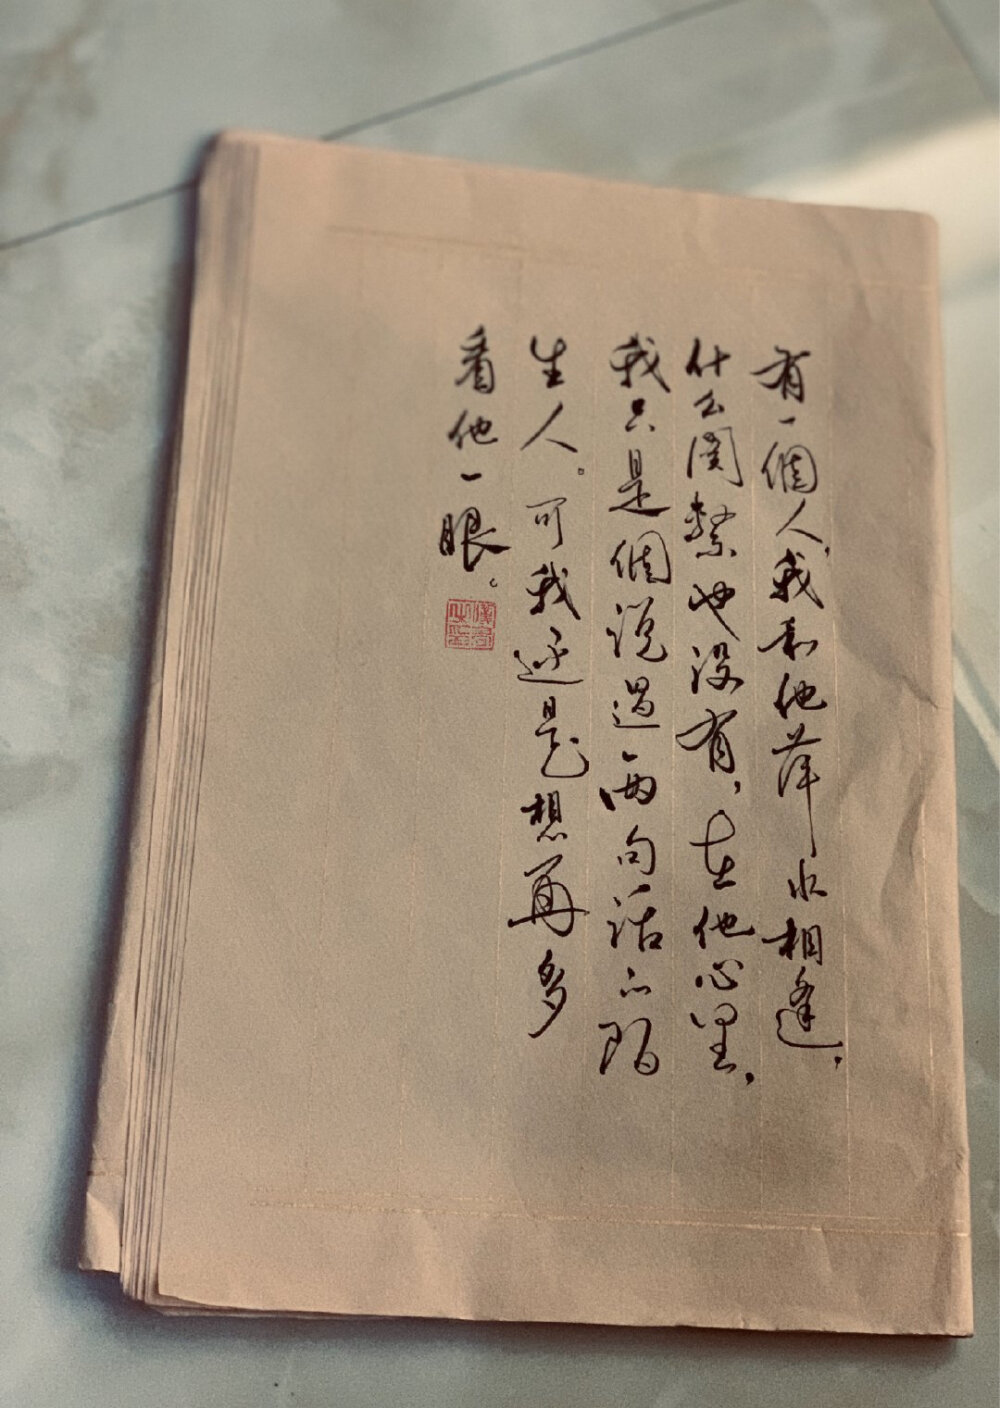 有一個人，我和他萍水相逢，
什么關繫也没有，在他心里，
我只是個説過兩句話的陌
生人。可我还是想再多
看他一眼。